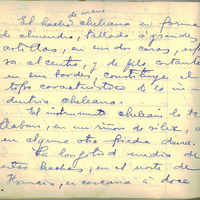 de mano
El hacha chelleana en forma
de almendra, tallada a grandes
astillas, en sus dos caras, espesa
al centro, y de filo cortante
en sus bordes, constituye el
tipo característico de la in-
dustria chelleana.
El instrumento chelleano lo ta-
llaban, en un riñón de sílex, o
en alguna otra piedra dura.
La longitud media de
estas hachas, en el norte de
Francia, es cercana a doce